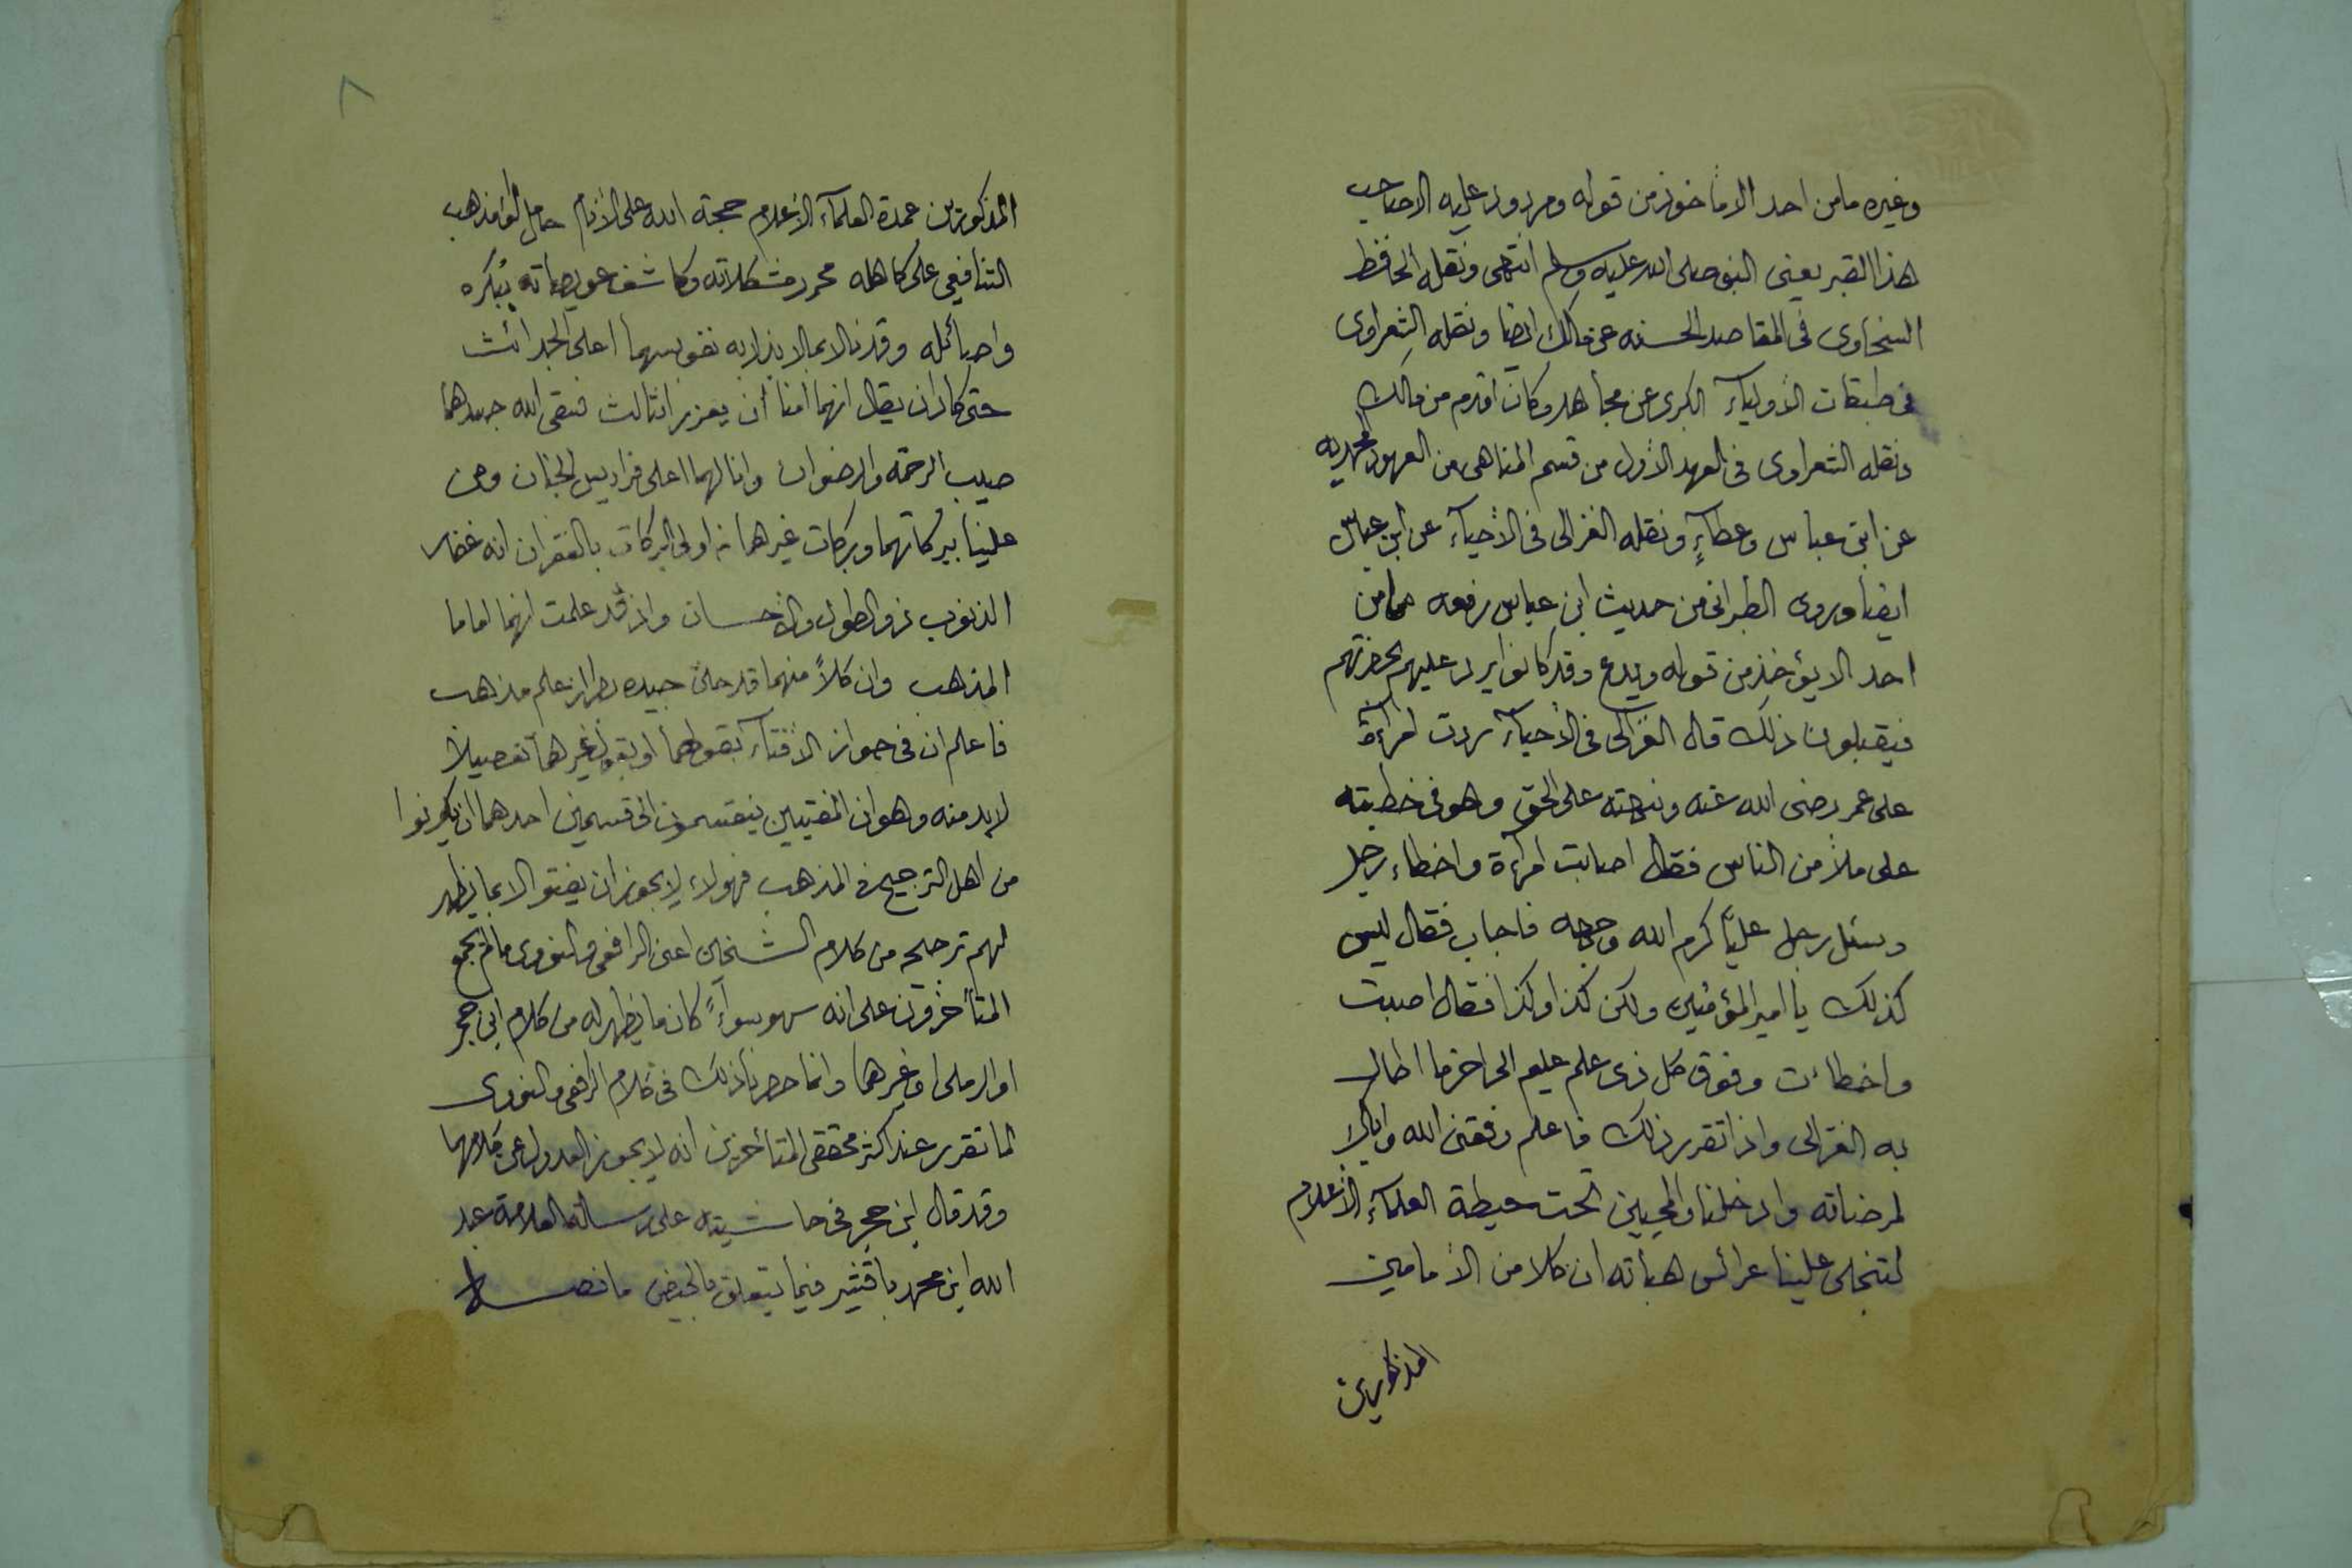 وغيره ما من احد الا مأخوذ من قوله ومردود عليه الا صاحب
هذا القبر يعنى النبى صلى الله عليه وسلم انتهى ونقله الحافظ
السخاوى فى المقاصد الحسنه عن مالك ايضا ونقله الشعراوى
فى طبقات الأولياء الكبرى عن مجاهد وكان أقدم من مالك
ونقله الشعراوى فى العهد الأول من قسم المناهى من العهود المحمديه
عن ابن عباس وعطاءٍ ونقله الغزالى فى الأحياء عن ابن عباس
ايضا وروى الطبرانى من حديث ابن عباس رفعه ما من
احد الا يؤخذ من قوله ويدع وقد كانوا يرد عليهم بحضرتهم
فيقبلون ذلك قال الغزالى فى الأحياء ردت امرأة
على عمر رضى الله عنه ونبهته على الحق وهو فى خطبته
على ملأ من الناس فقال اصابت امرأة واخطاء رجل
وسئل رجل عليًّا كرم الله وجهه فاجاب فقال ليس
كذلك يا امير المؤمنين ولكن كذا وكذا فقال اصبت
واخطاءت وفوق كل ذى علم عليم الى اخر ما اطال
به الغزالى واذا تقرر ذلك فاعلم وفقنى الله واياك
لمرضاته وادخلنا والمحبين تحت حيطة العلماء الأعلام
لتنجلى علينا عرائس هباته ان كلا من الأمامين
المذكورين
٨
المذكورين عمدة العلماء الأعلام حجة الله على الأنام حامل لواء مذهب
الشافعى على كاهله محرر مشكلاته وكاشف عويصاته ببكره
واصائله وقد نالا بما لا بذلا به نفوسهما اعلى الجد
حتى كاد ان يقال انهما أمنا أن يعززا بثالث فسقى الله جدثهما
صيب الرحمة والرضوان وانالهما اعلى فراديس الجنان ومن
علينا ببركاتهما وبركات غيرهما من اولى البركات بالغفران انه غفار
الذنوب ذو الطول والأحسان واذ قد علمت انهما اماما
المذهب وان كلاً منهما قد حلى جيده بطراز علم مذهب
فاعلم ان فى جواز الأفتاء بقولهما او بقول غيرهما تفصيلا
لا بد منه وهو ان المفتيين ينقسمون الى قسمين احدهما ان يكونوا
من اهل الترجيح فى المذهب فهولاء لا يجوز ان يفتوا الا بما يظهر
لهم ترجيحه من كلام الشيخين اعنى الرافعى والنووى ما لم يجمع
المتأخرون على انه سهو سواءً كان ما يظهر له من كلام ابن حجر
او الرملى او غيرهما وانما حصرنا ذلك فى كلام الرافعى والنووى
لما تقرر عند اكثر محققى المتأخرين انه لا يجوز العدول عن كلامهما
وقد قال ابن حجر فى حاشيته على رسالة العلامة عبد
الله ابن محمد باقشير فيما يتعلق بالحيض ما نصه